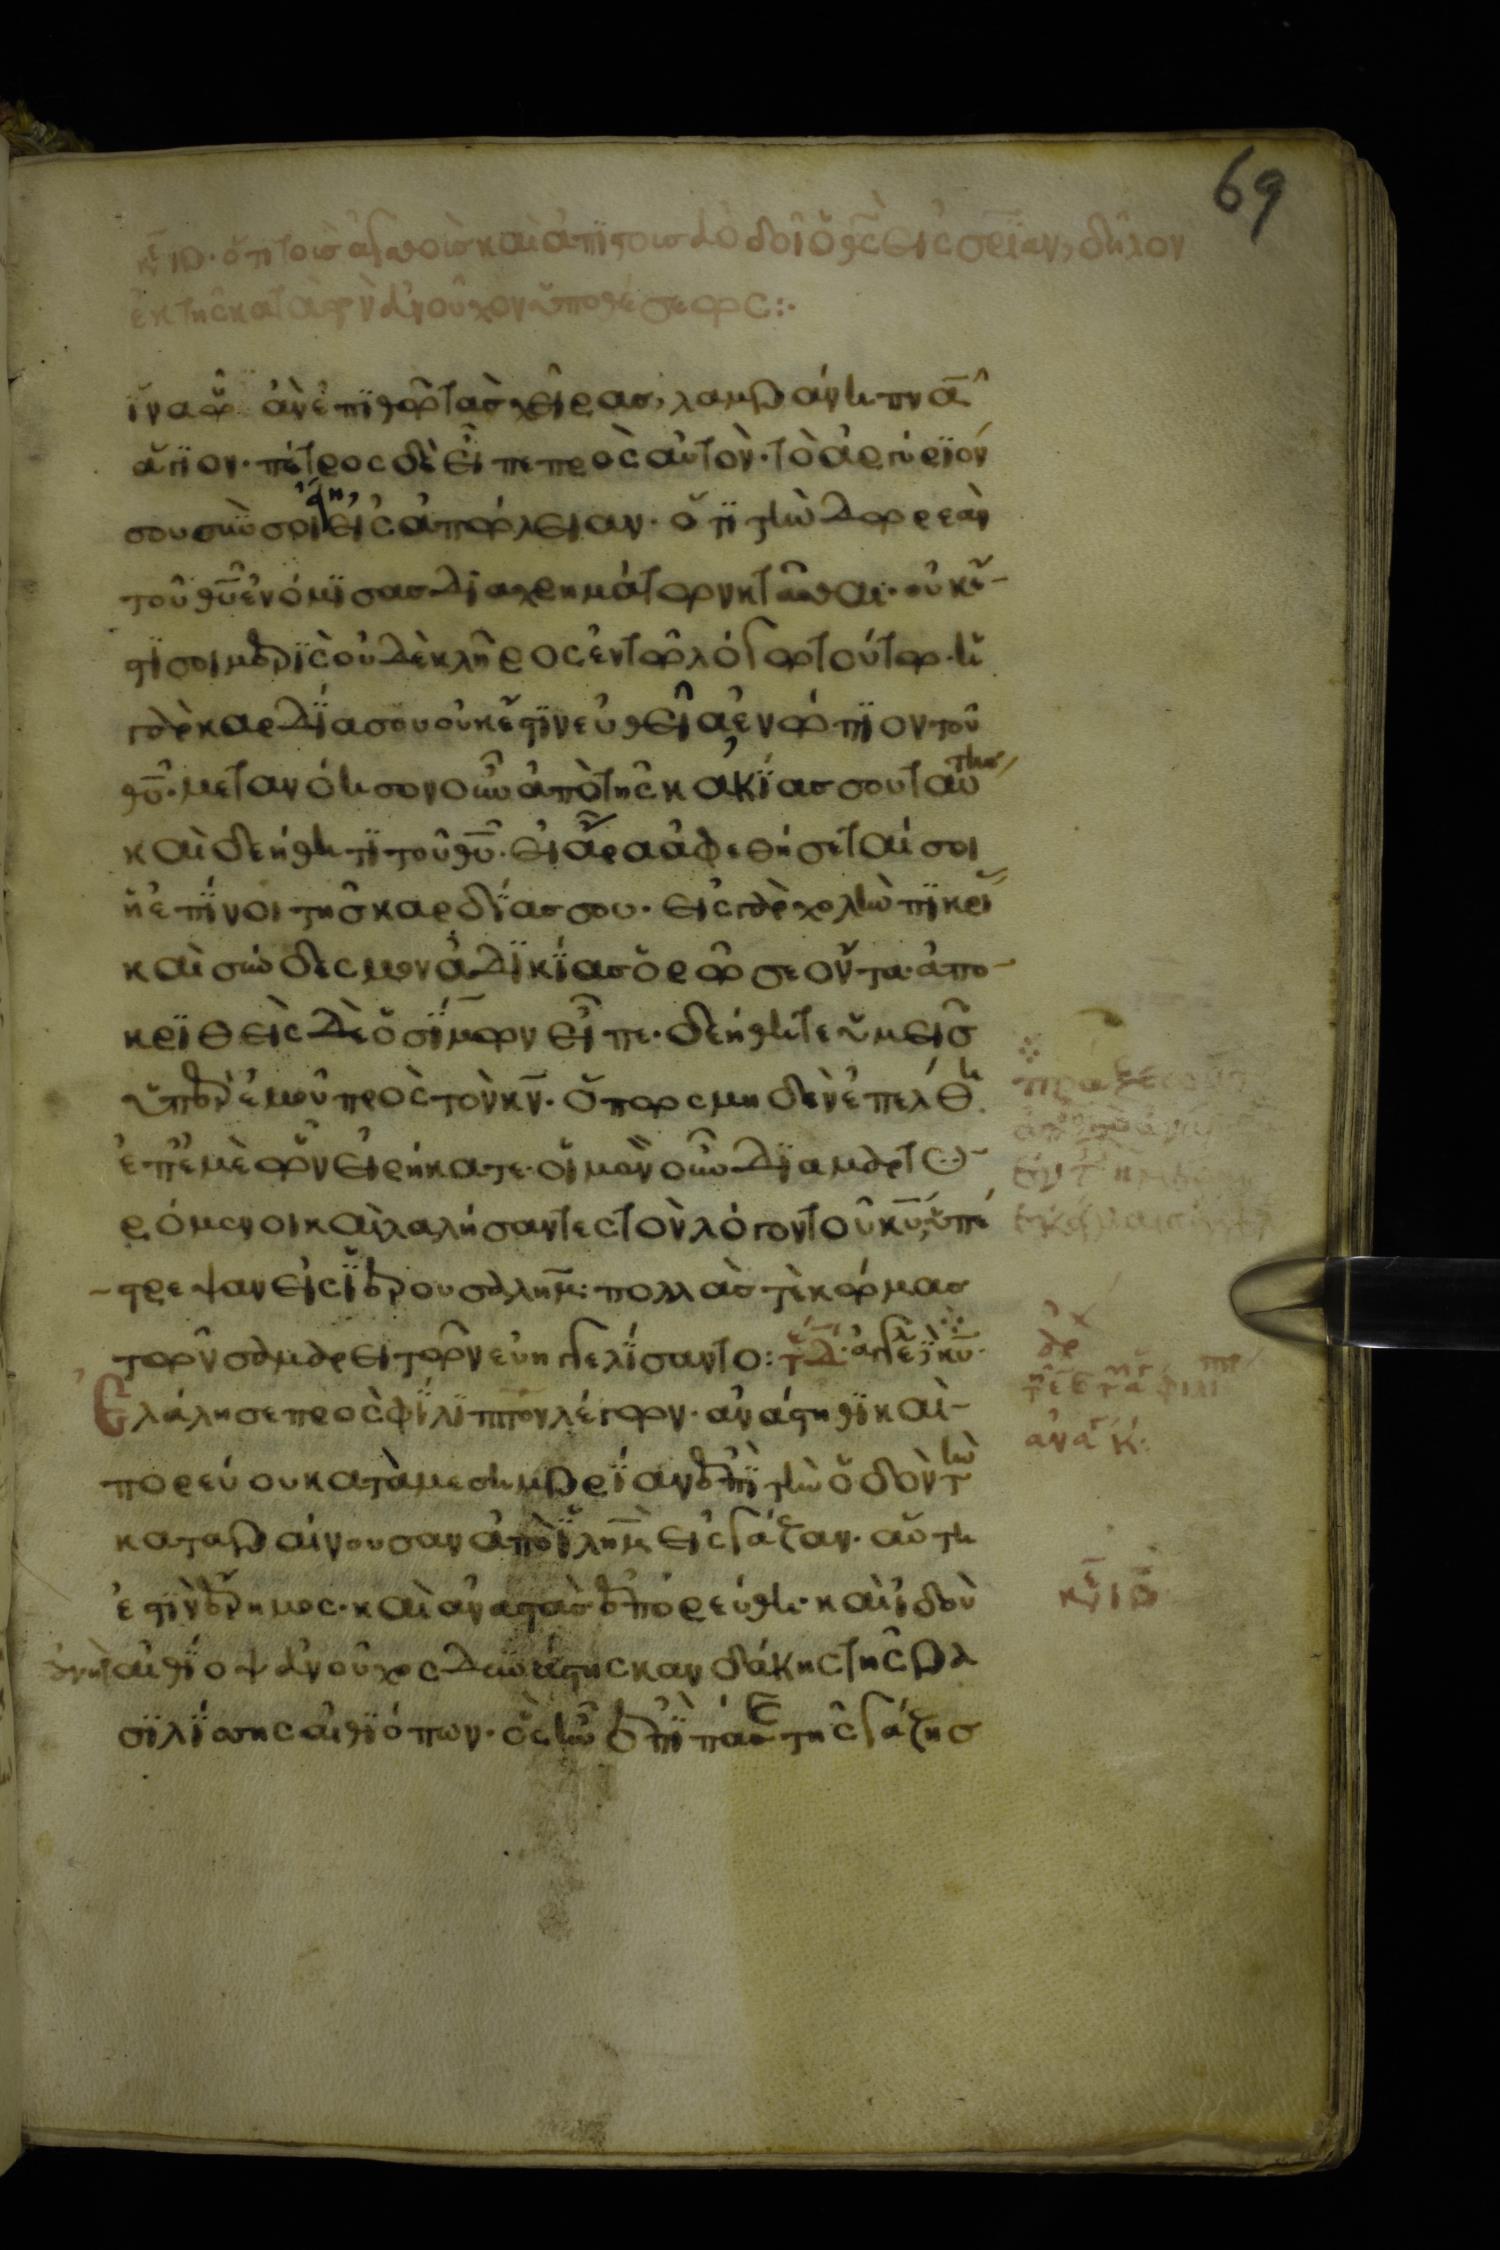 69
κε ιθ· ὅτι τοῖς ἀγαθοῖς καὶ ἀπίστοις εὐοδοῖ ὁ θς εἰς σριαν, δῆλον
ἐκ τῆς κατὰ τὸν εὐνοῦχον ὑποθέσεως:·
ἵνα ᾧ ἀν ἐπιθῶ τὰς χεῖρας, λαμβάνη πνα
ἅγιον· πέτρος δὲ εἶπε πρὸς αὐτὸν· τὸ ἀργύριόν
σου σὺν σοὶ εἴη εἰς ἀπώλειαν· ὅτι τὴν δωρεὰν
τοῦ θυ ἐνόμισας διὰ χρημάτων κτᾶσθαι· οὐκ ἔ
στι σοι μερὶς οὐδὲ κλῆρος ἐν τῶ λόγω τούτω· ἡ
γὰρ καρδία σου οὐκ ἔστιν εὐθεῖα ἐνώπιον τοῦ
θυ· μετανόησον οὖν ἀπὸ τῆς κακίας σου ταύτης
καὶ δεήθητι τοῦ θυ· εἰ ἄρα ἀφεθήσεταί σοι
ἡ ἐπίνοι τῆς καρδίας σου· εἰς γὰρ χολὴν πικρί
καὶ σύνδεσμον ἀδικίας ὁρῶ σε ὄντα· ἀπο
κριθεὶς δὲ ὁ σίμων εἶπε· δεήθητε ὑμεῖς
ὑπὲρ ἐμοῦ πρὸς τὸν κν· ὅπως μηδὲν ἐπέλθη
ἐπ ἐμὲ ὧν εἰρήκατε· οἱ μὲν οὖν διαμαρτυ
ρόμενοι καὶ λαλήσαντες τὸν λόγον τοῦ κυ, ὑπέ
στρεψαν εἰς ἱερουσαλημ: πολλάς τε κώμας
τῶν σαμαρειτῶν εὐηγγελίσαντο: τελ· ἀγγελ κυ·
Ἐλάλησε πρὸς φίλιππον λέγων· ἀνάστηθι καὶ
πορεύου κατὰ μεσημβρίαν ἐπὶ τὴν ὁδὸν τὴν
καταβαίνουσαν ἀπὸ ιλημ εἰς γάζαν· αὕτη
ἐστὶν ἔρημος· καὶ ἀναστὰς ἐπορεύθη· καὶ ἰδοὺ
ἀνὴρ αἰθίοψ εὐνοῦχος δυνάστης κανδάκης τῆς βα
σιλίσσης αἰθιόπων· ὃς ἦν ἐπὶ πάσης τῆς γάζης
κε ιθ